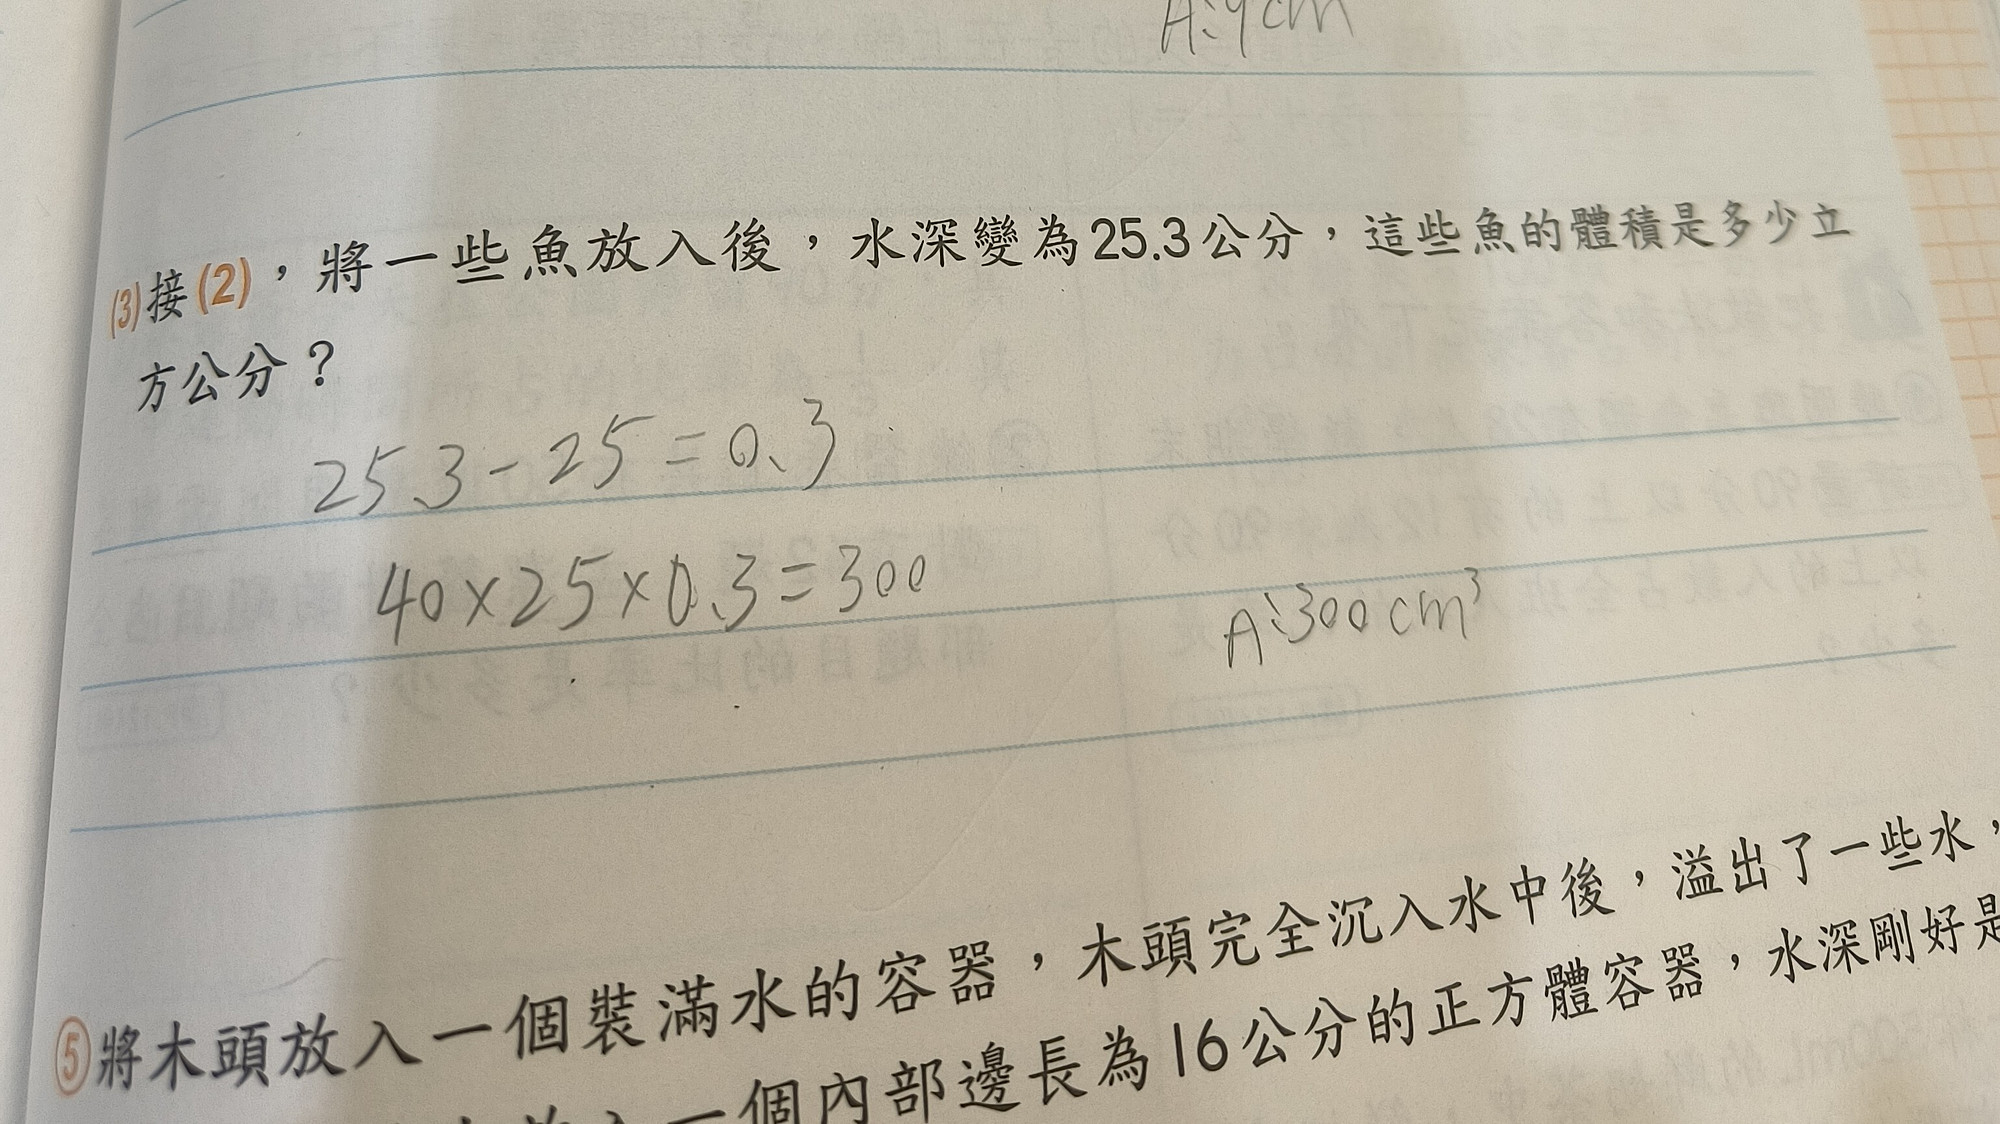 A:9cm
(3)接(2)，將一些魚放入後，水深變為25.3公分，這些魚的體積是多少立
方公分？
25.3-25=0.3
40×25×0.3=300
A:300cm³
⑤將木頭放入一個裝滿水的容器，木頭完全沉入水中後，溢出了一些水，
入一個內部邊長為16公分的正方體容器，水深剛好是